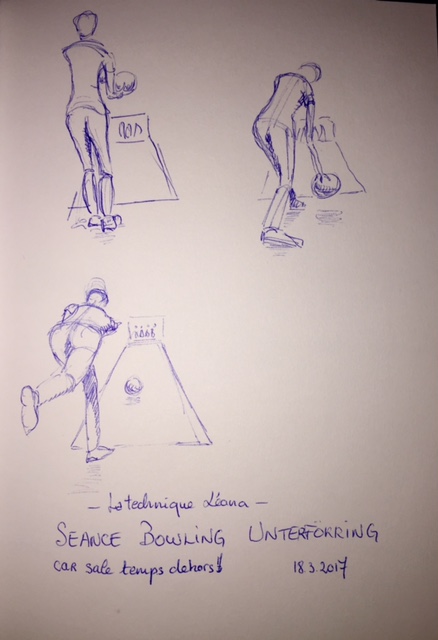 – La technique Léana –
SEANCE BOWLING UNTERFÖRRING
car sale temps dehors!!
18 3 2017